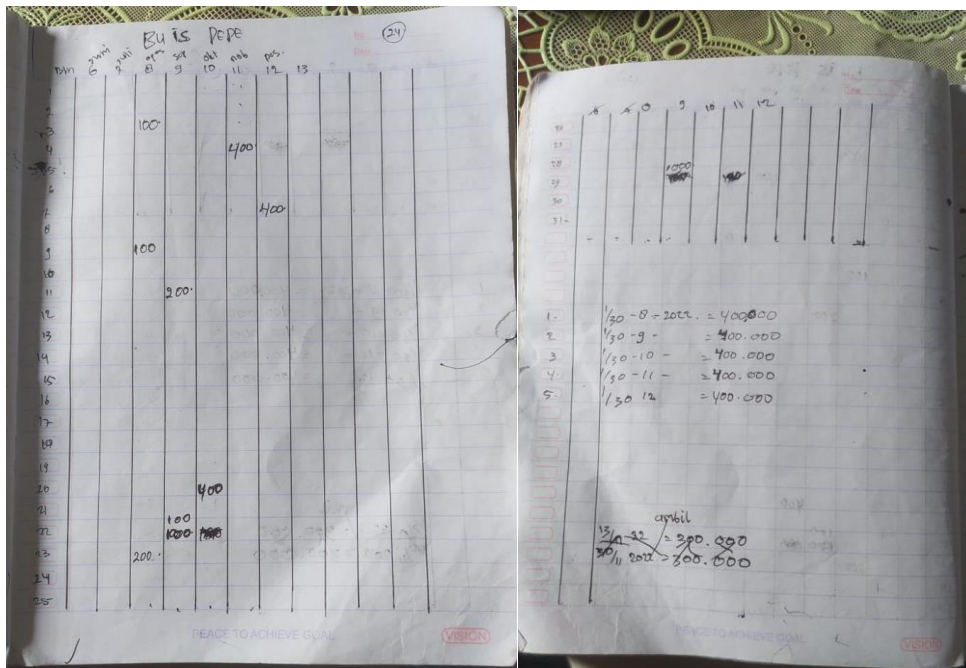 BU IS PEPE 24
juni juli agus sep okt nob des.
Bln 6 7 8 9 10 11 12 13
1
2
3 100.
4 400.
5
6
7 400.
8
9 100
10
11 200.
12
13
14
15
16
17
18
19
20 400
21 100
22
23 200.
24
25
PEACE TO ACHIEVE GOAL VISION
8 9 10 11 12
28
29
30
31
1. 1/30 - 8 - 2022. = 400.000
2 1/30 - 9 - = 400.000
3 1/30 - 10 - = 400.000
4. 1/30 - 11 - = 400.000
5. 1/30 12 = 400.000
ambil
22 = 300.000
11 2022 = 300.000
PEACE TO ACHIEVE GOAL VISION